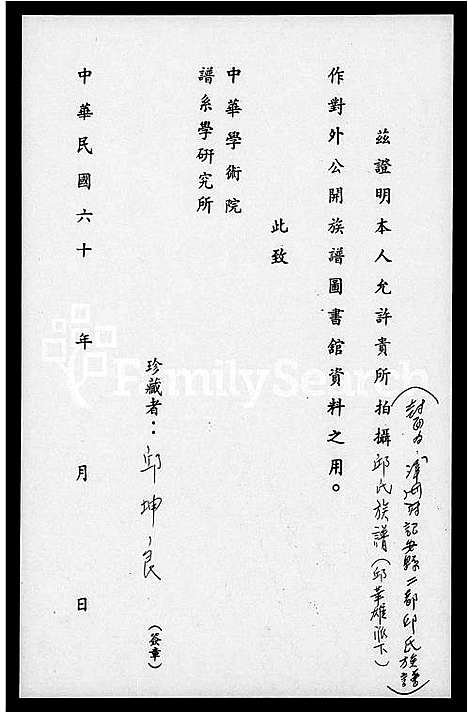 茲證明本人允許貴所拍攝邱氏族譜(邱華雄派下)
(封面為:漳州府詔安縣二都邱氏族譜)
作對外公開族譜圖書舘資料之用。
此致
中華學術院
譜系學研究所
珍藏者：邱坤良(簽章)
中華民國六十年月日
FamilySearch